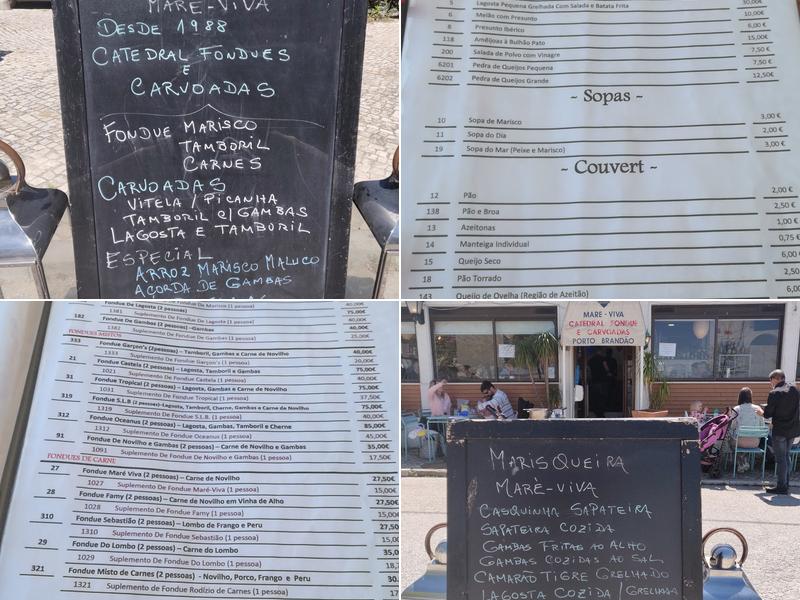 MARÉ-VIVA
DESDE 1988
CATEDRAL FONDUES
E
CARVOADAS
FONDUE MARISCO
TAMBORIL
CARNES
CARVOADAS
VITELA / PICANHA
TAMBORIL C/ GAMBAS
LAGOSTA E TAMBORIL
ESPECIAL
ARROZ MARISCO MALUCO
AÇORDA DE GAMBAS
5 Lagosta Pequena Grelhada Com Salada e Batata Frita 30,00€
6 Melão com Presunto 10,00€
8 Presunto Ibérico 6,00 €
118 Amêijoas à Bulhão Pato 15,00€
200 Salada de Polvo com Vinagre 7,50 €
6201 Pedra de Queijos Pequena 7,50 €
6202 Pedra de Queijos Grande 12,50€
~ Sopas ~
10 Sopa de Marisco 3,00 €
11 Sopa do Dia 2,00 €
19 Sopa do Mar (Peixe e Marisco) 3,00 €
~ Couvert ~
12 Pão 2,00 €
138 Pão e Broa 2,50 €
13 Azeitonas 1,00 €
14 Manteiga Individual 0,75 €
15 Queijo Seco 6,00
18 Pão Torrado 2,50
143 Queijo de Ovelha (Região de Azeitão) 6,00
Fondue De Lagosta (2 pessoas) 75,00€
1381 Suplemento De Fondue De Lagosta (1 pessoa) 40,00€
182 Fondue De Gambas (2 pessoas) –Gambas 40,00€
1382 Suplemento De Fondue De Gambas (1 pessoa) 25,00€
FONDUES MISTOS
333 Fondue Garçon's (2 pessoas) – Tamboril, Gambas e Carne de Novilho 40,00€
1333 Suplemento De Fondue Garçon's (1 pessoa) 20,00€
21 Fondue Castela (2 pessoas) – Lagosta, Tamboril e Gambas 75,00€
1021 Suplemento De Fondue Castela (1 pessoa) 40,00€
31 Fondue Tropical (2 pessoas) – Lagosta, Gambas e Carne de Novilho 75,00€
1031 Suplemento De Fondue Tropical (1 pessoa) 37,50€
319 Fondue S.L.B. (2 pessoas)–Lagosta, Tamboril, Cherne, Gambas e Carne de Novilho 75,00€
1319 Suplemento De Fondue S.L.B. (1 pessoa) 40,00€
312 Fondue Oceanus (2 pessoas) – Lagosta, Gambas, Tamboril e Cherne 85,00€
1312 Suplemento De Fondue Oceanus (1 pessoa) 45,00€
91 Fondue De Novilho e Gambas (2 pessoas) – Carne de Novilho e Gambas 35,00€
1091 Suplemento De Fondue De Novilho e Gambas (1 pessoa) 17,50€
FONDUES DE CARNE
27 Fondue Maré Viva (2 pessoas) – Carne de Novilho 27,50€
1027 Suplemento De Fondue Maré-Viva (1 pessoa) 15,00€
28 Fondue Famy (2 pessoas) – Carne de Novilho em Vinha de Alho 27,50€
1028 Suplemento De Fondue Famy (1 pessoa) 15,00
310 Fondue Sebastião (2 pessoas) – Lombo de Frango e Peru 27,50
1310 Suplemento De Fondue Sebastião (1 pessoa) 15,0
29 Fondue Do Lombo (2 pessoas) – Carne do Lombo 35,0
1029 Suplemento De Fondue Do Lombo (1 pessoa) 18,
321 Fondue Misto de Carnes (2 pessoas) - Novilho, Porco, Frango e Peru 30.
1321 Suplemento de Fondue Rodízio de Carnes (1 pessoa) 17
MARE - VIVA
CATEDRAL FONDUE
E CARVOADAS
PORTO BRANDÃO
MARISQUEIRA
MARÈ-VIVA
CASQUINHA SAPATEIRA
SAPATEIRA COZIDA
GAMBAS FRITAS AO ALHO
GAMBAS COZIDAS AO SAL
CAMARÃO TIGRE GRELHADO
LAGOSTA COZIDA / GRELHADA